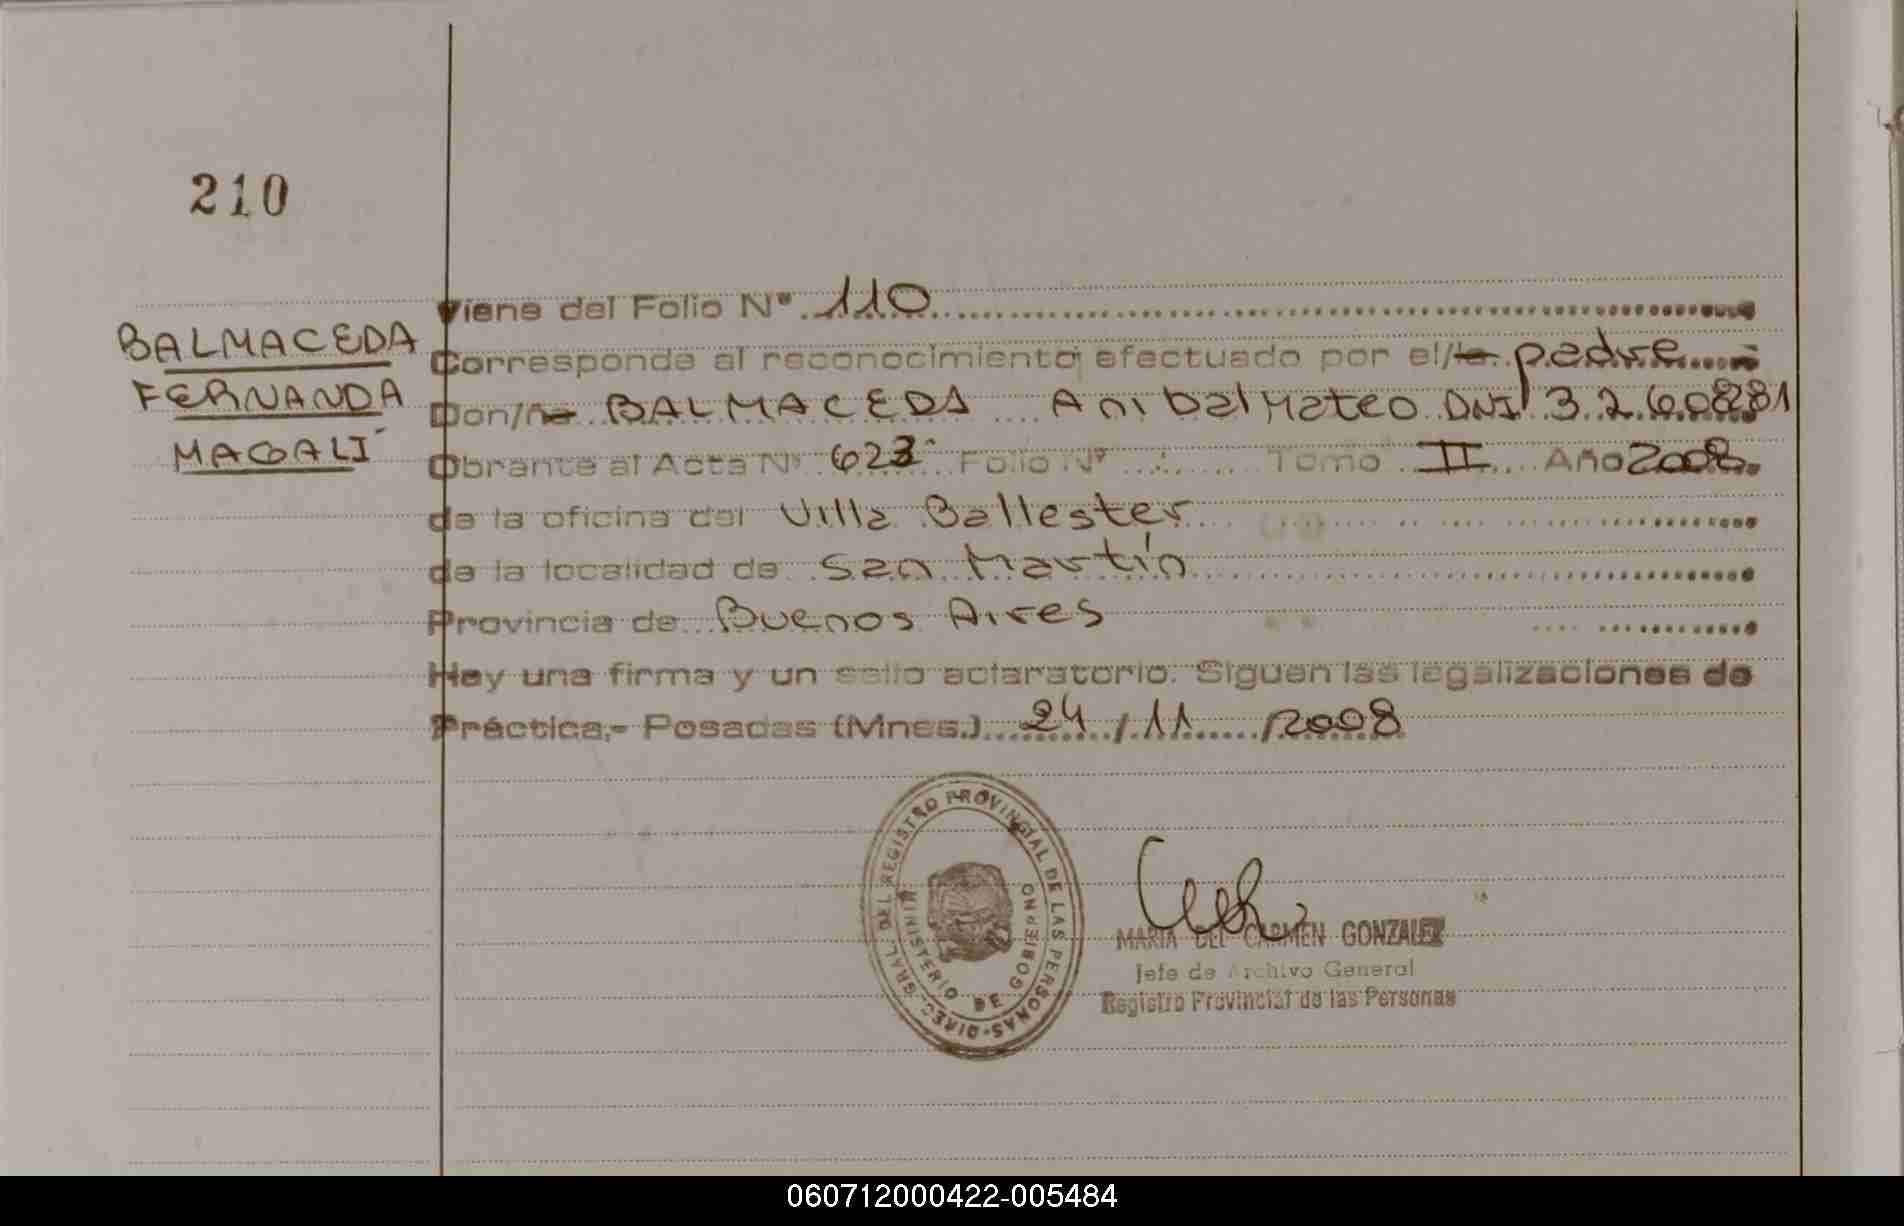 210
BALMACEDA
FERNANDA
MAGALÍ
Viene del Folio Nº 110
Corresponde al reconocimiento efectuado por el/la padre
Don/ña BALMACEDA Anibal Mateo DNI 32.608281
Obrante al Acta Nº 623 Folio Nº Tomo II Año 2008.
de la oficina del Villa Ballester
de la localidad de San Martín
Provincia de Buenos Aires
Hay una firma y un sello aclaratorio. Siguen las legalizaciones de
Práctica.- Posadas (Mnes.) 24/11/2008
DIREC. GRAL. DEL REGISTRO PROVINCIAL DE LAS PERSONAS
MINISTERIO DE GOBIERNO
MARIA DEL CARMEN GONZALEZ
Jefe de Archivo General
Registro Provincial de las Personas
060712000422-005484